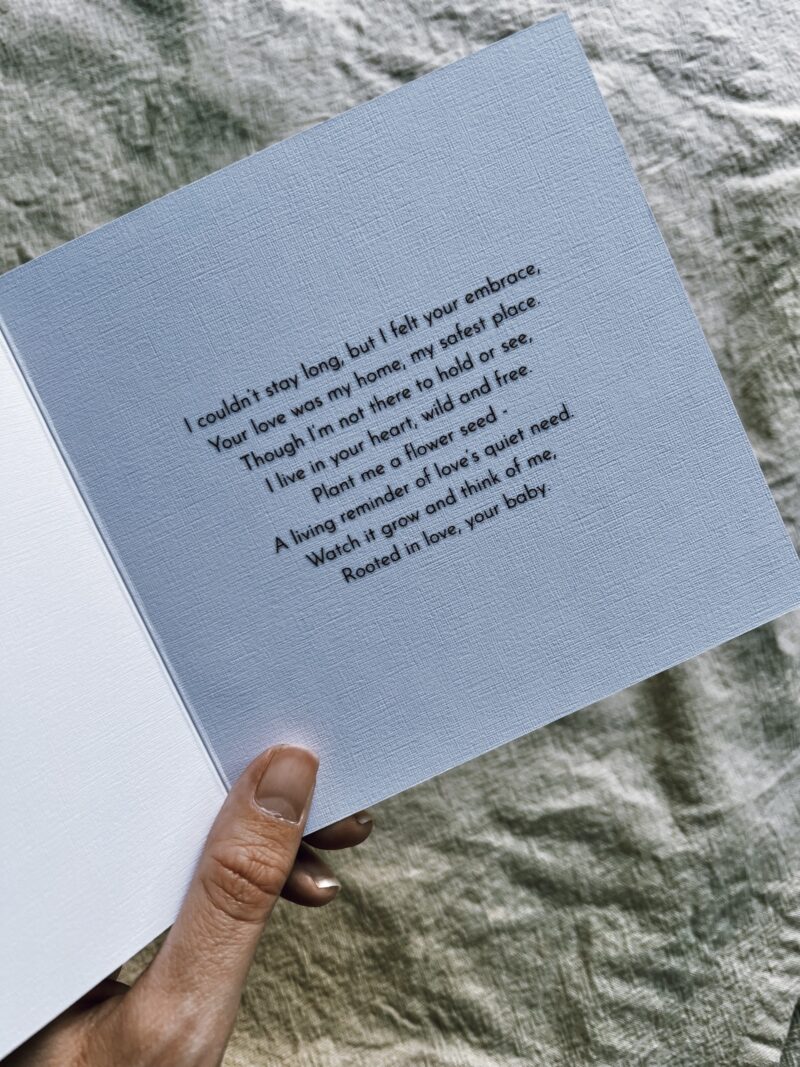 I couldn't stay long, but I felt your embrace,
Your love was my home, my safest place.
Though I'm not there to hold or see,
I live in your heart, wild and free.
Plant me a flower seed -
A living reminder of love's quiet need.
Watch it grow and think of me,
Rooted in love, your baby.